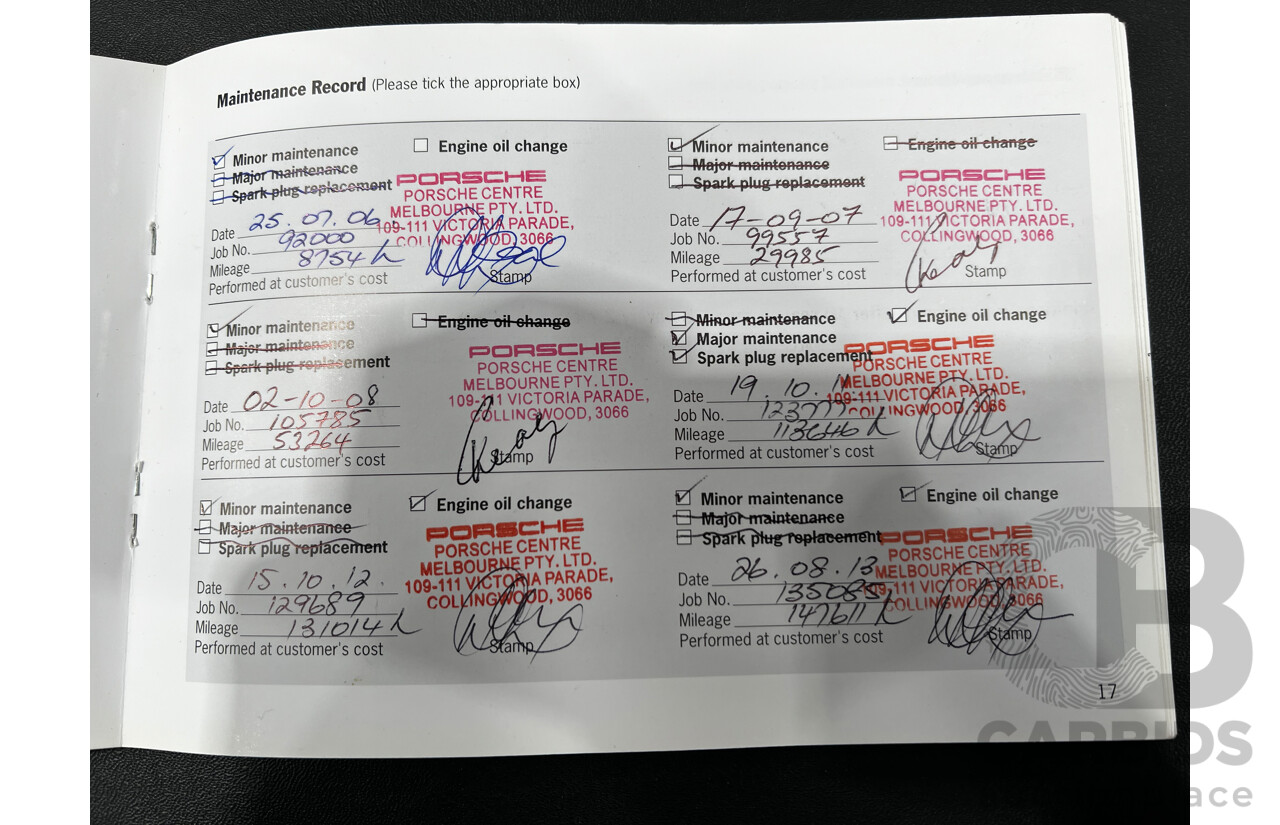 Maintenance Record (Please tick the appropriate box)
Minor maintenance
Major maintenance
Spark plug replacement
Engine oil change
PORSCHE
PORSCHE CENTRE
MELBOURNE PTY. LTD.
109-111 VICTORIA PARADE,
COLLINGWOOD, 3066
Date 25.07.06
Job No. 92000
Mileage 8754
Performed at customer's cost
Stamp
Minor maintenance
Major maintenance
Spark plug replacement
Engine oil change
PORSCHE
PORSCHE CENTRE
MELBOURNE PTY. LTD.
109-111 VICTORIA PARADE,
COLLINGWOOD, 3066
Date 17-09-07
Job No. 99557
Mileage 29985
Performed at customer's cost
Stamp
Minor maintenance
Major maintenance
Spark plug replacement
Engine oil change
PORSCHE
PORSCHE CENTRE
MELBOURNE PTY. LTD.
109-111 VICTORIA PARADE,
COLLINGWOOD, 3066
Date 02-10-08
Job No. 105785
Mileage 53264
Performed at customer's cost
Stamp
Minor maintenance
Major maintenance
Spark plug replacement
Engine oil change
PORSCHE
PORSCHE CENTRE
MELBOURNE PTY. LTD.
109-111 VICTORIA PARADE,
COLLINGWOOD, 3066
Date 19.10.11
Job No.
Mileage 113646
Performed at customer's cost
Stamp
Minor maintenance
Major maintenance
Spark plug replacement
Engine oil change
PORSCHE
PORSCHE CENTRE
MELBOURNE PTY. LTD.
109-111 VICTORIA PARADE,
COLLINGWOOD, 3066
Date 15.10.12.
Job No. 129689
Mileage 131014
Performed at customer's cost
Stamp
Minor maintenance
Major maintenance
Spark plug replacement
Engine oil change
PORSCHE
PORSCHE CENTRE
MELBOURNE PTY. LTD.
109-111 VICTORIA PARADE,
COLLINGWOOD, 3066
Date 26.08.13
Job No. 135085
Mileage 147611
Performed at customer's cost
Stamp
17
CARBIDS